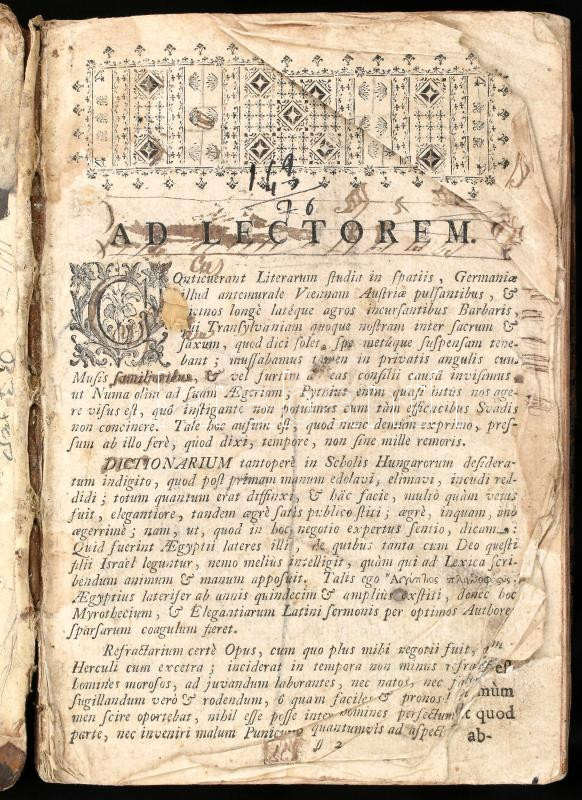 149
76
AD LECTOREM.
COnticuerant Literarum studia in spatiis, Germaniæ
illud antemurale Viennam Austriæ pulsantibus, &
vicinos longè latéque agros incursantibus Barbaris,
qui Transylvaniam quoque nostram inter sacrum &
saxum, quod dici solet, spe metúque suspensam tene-
bant; mussabamus tamen in privatis angulis cum
Musis familiaribus, & vel furtim ad eas consilii causâ invisimus
ut Numa olim ad suam Ægeriam; Pythius enim quasi intus nos age-
re visus est, quô instigante non potuimus cum tàm efficacibus Svadis
non concinere. Tale hoc ausum est, quod nunc demum exprimo, pres-
sum ab illo ferè, quod dixi, tempore, non sine mille remoris.
DICTIONARIUM tantoperè in Scholis Hungarorum desidera-
tum indigito, quod post primam manum edolavi, elimavi, incudi red-
didi; totum quantum erat diffinxi, & hâc facie, multò quàm vetus
fuit, elegantiore, tandem ægrè satis publico stiti; ægrè, inquam, imò
ægerrimè; nam, ut, quod in hoc negotio expertus sentio, dicam:
Quid fuerint Ægyptii lateres illi, de quibus tanta cum Deo questi
filii Israël leguntur, nemo melius intelligit, quàm qui ad Lexica scri-
bendum animum & manum apposuit. Talis ego Αἰγύπτιος πλινθοφόρος,
Ægyptius laterifer ab annis quindecim & ampliùs exstiti, donec hoc
Myrothecium, & Elegantiarum Latini sermonis per optimos Authores
sparsarum coagulum fieret.
Refractarium certè Opus, cum quo plus mihi negotii fuit,
Herculi cum excetra; inciderat in tempora non minus
homines morosos, ad juvandum laborantes, nec natos, nec
sugillandum verò & rodendum, ô quam faciles & pronos!
men scire oportebat, nihil esse posse inter homines perfectum
parte, nec inveniri malum Punicum quantumvis ad
quod
ab-